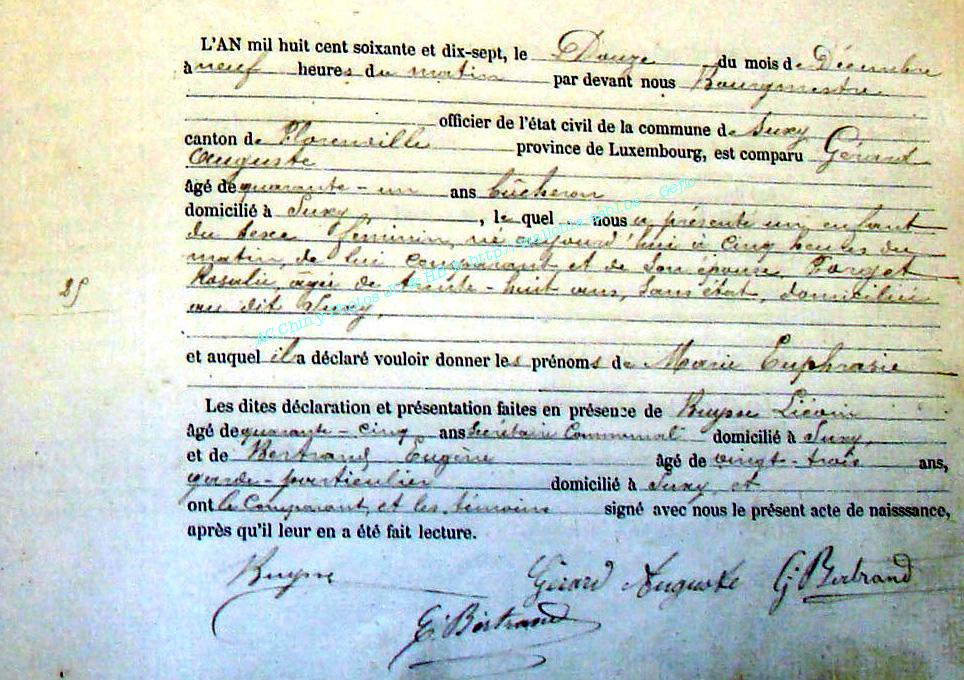 L'AN mil huit cent soixante et dix-sept, le Douze du mois de Décembre
à neuf heures du matin par devant nous Bourgmestre
officier de l'état civil de la commune de Suxy
canton de Florenville province de Luxembourg, est comparu Gérard
Auguste
âgé de quarante-un ans bûcheron
domicilié à Suxy, le quel nous a présenté un enfant
du sexe féminin, né aujourd'hui à cinq heures du
matin, de lui comparant et de son épouse, Forget
Rosalie, agée de trente-huit ans, sans état, domiciliée
au dit Suxy,
25
et auquel il a déclaré vouloir donner les prénoms de Marie Euphrasie
Les dites déclaration et présentation faites en présence de Ruysse Liévin
âgé de quarante-cinq ans Secrétaire Communal domicilié à Suxy,
et de Bertrand Eugène âgé de vingt-trois ans,
garde-particulier domicilié à Suxy, et
ont le Comparant, et les témoins signé avec nous le présent acte de naisssance,
après qu'il leur en a été fait lecture.
Ruysse Gérard Auguste G. Bertrand
E. Bertrand